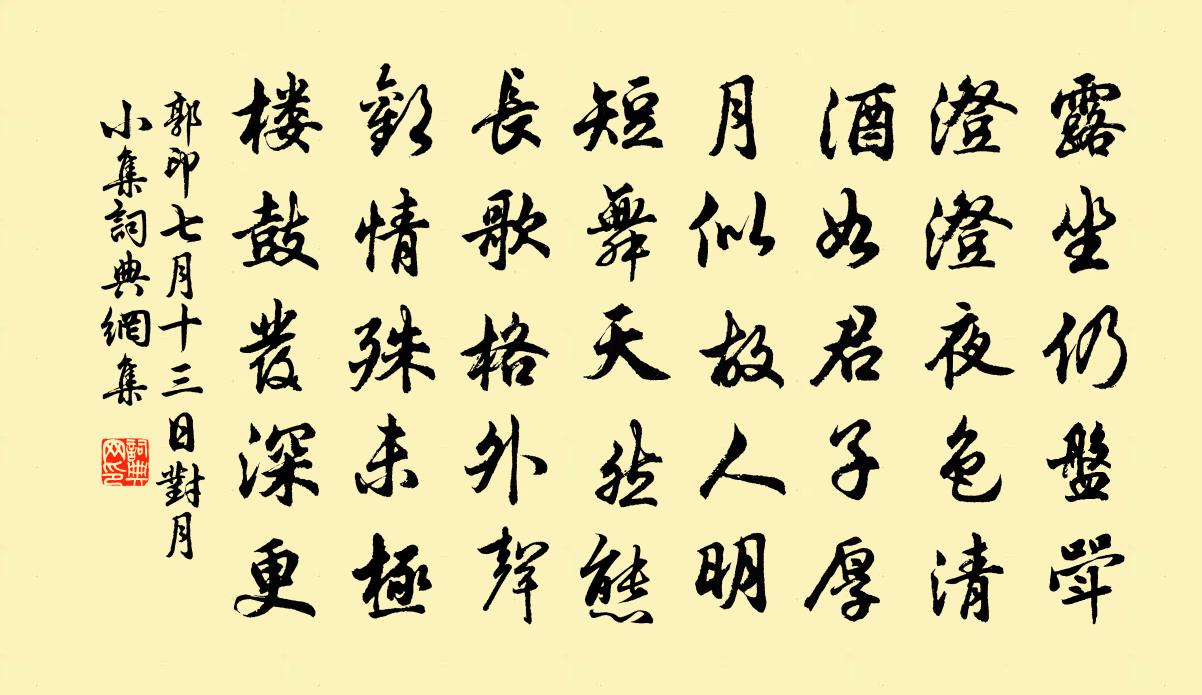 露坐仍盤斝
澄澄夜色清
酒如君子厚
月似故人明
短舞天然態
長歌格外聲
歡情殊未極
楼鼓發深更
郭印七月十三日對月
小集詞典網集
詞典网印